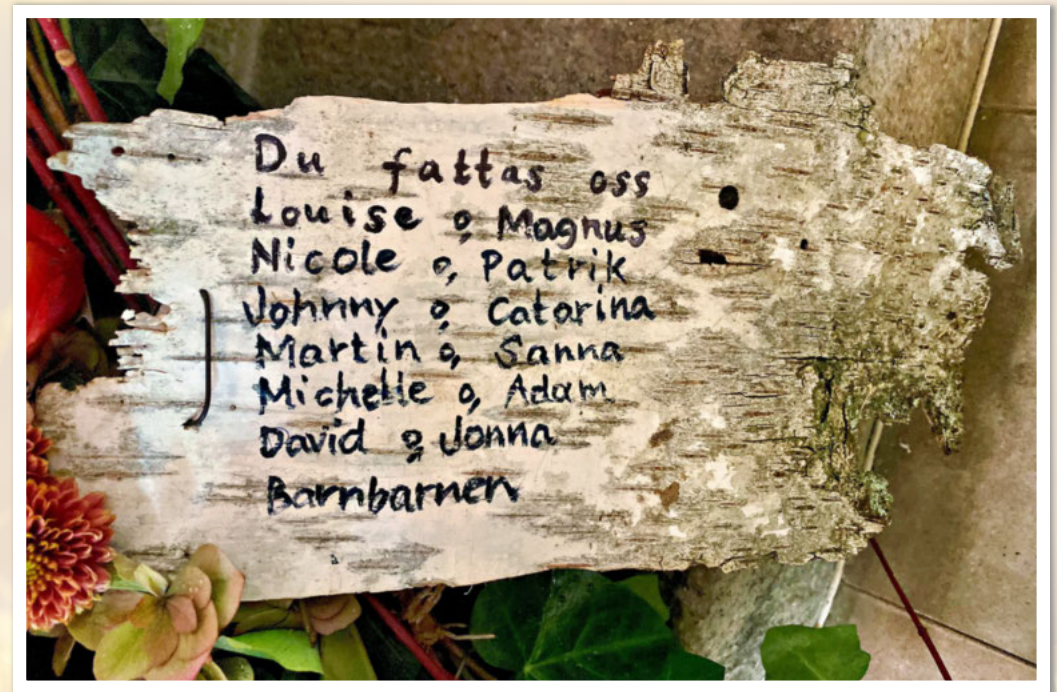 Du fattas oss
Louise o Magnus
Nicole o, Patrik
Johnny o Catarina
Martin o, Sanna
Michelle o, Adam
David o Jonna
Barnbarnen